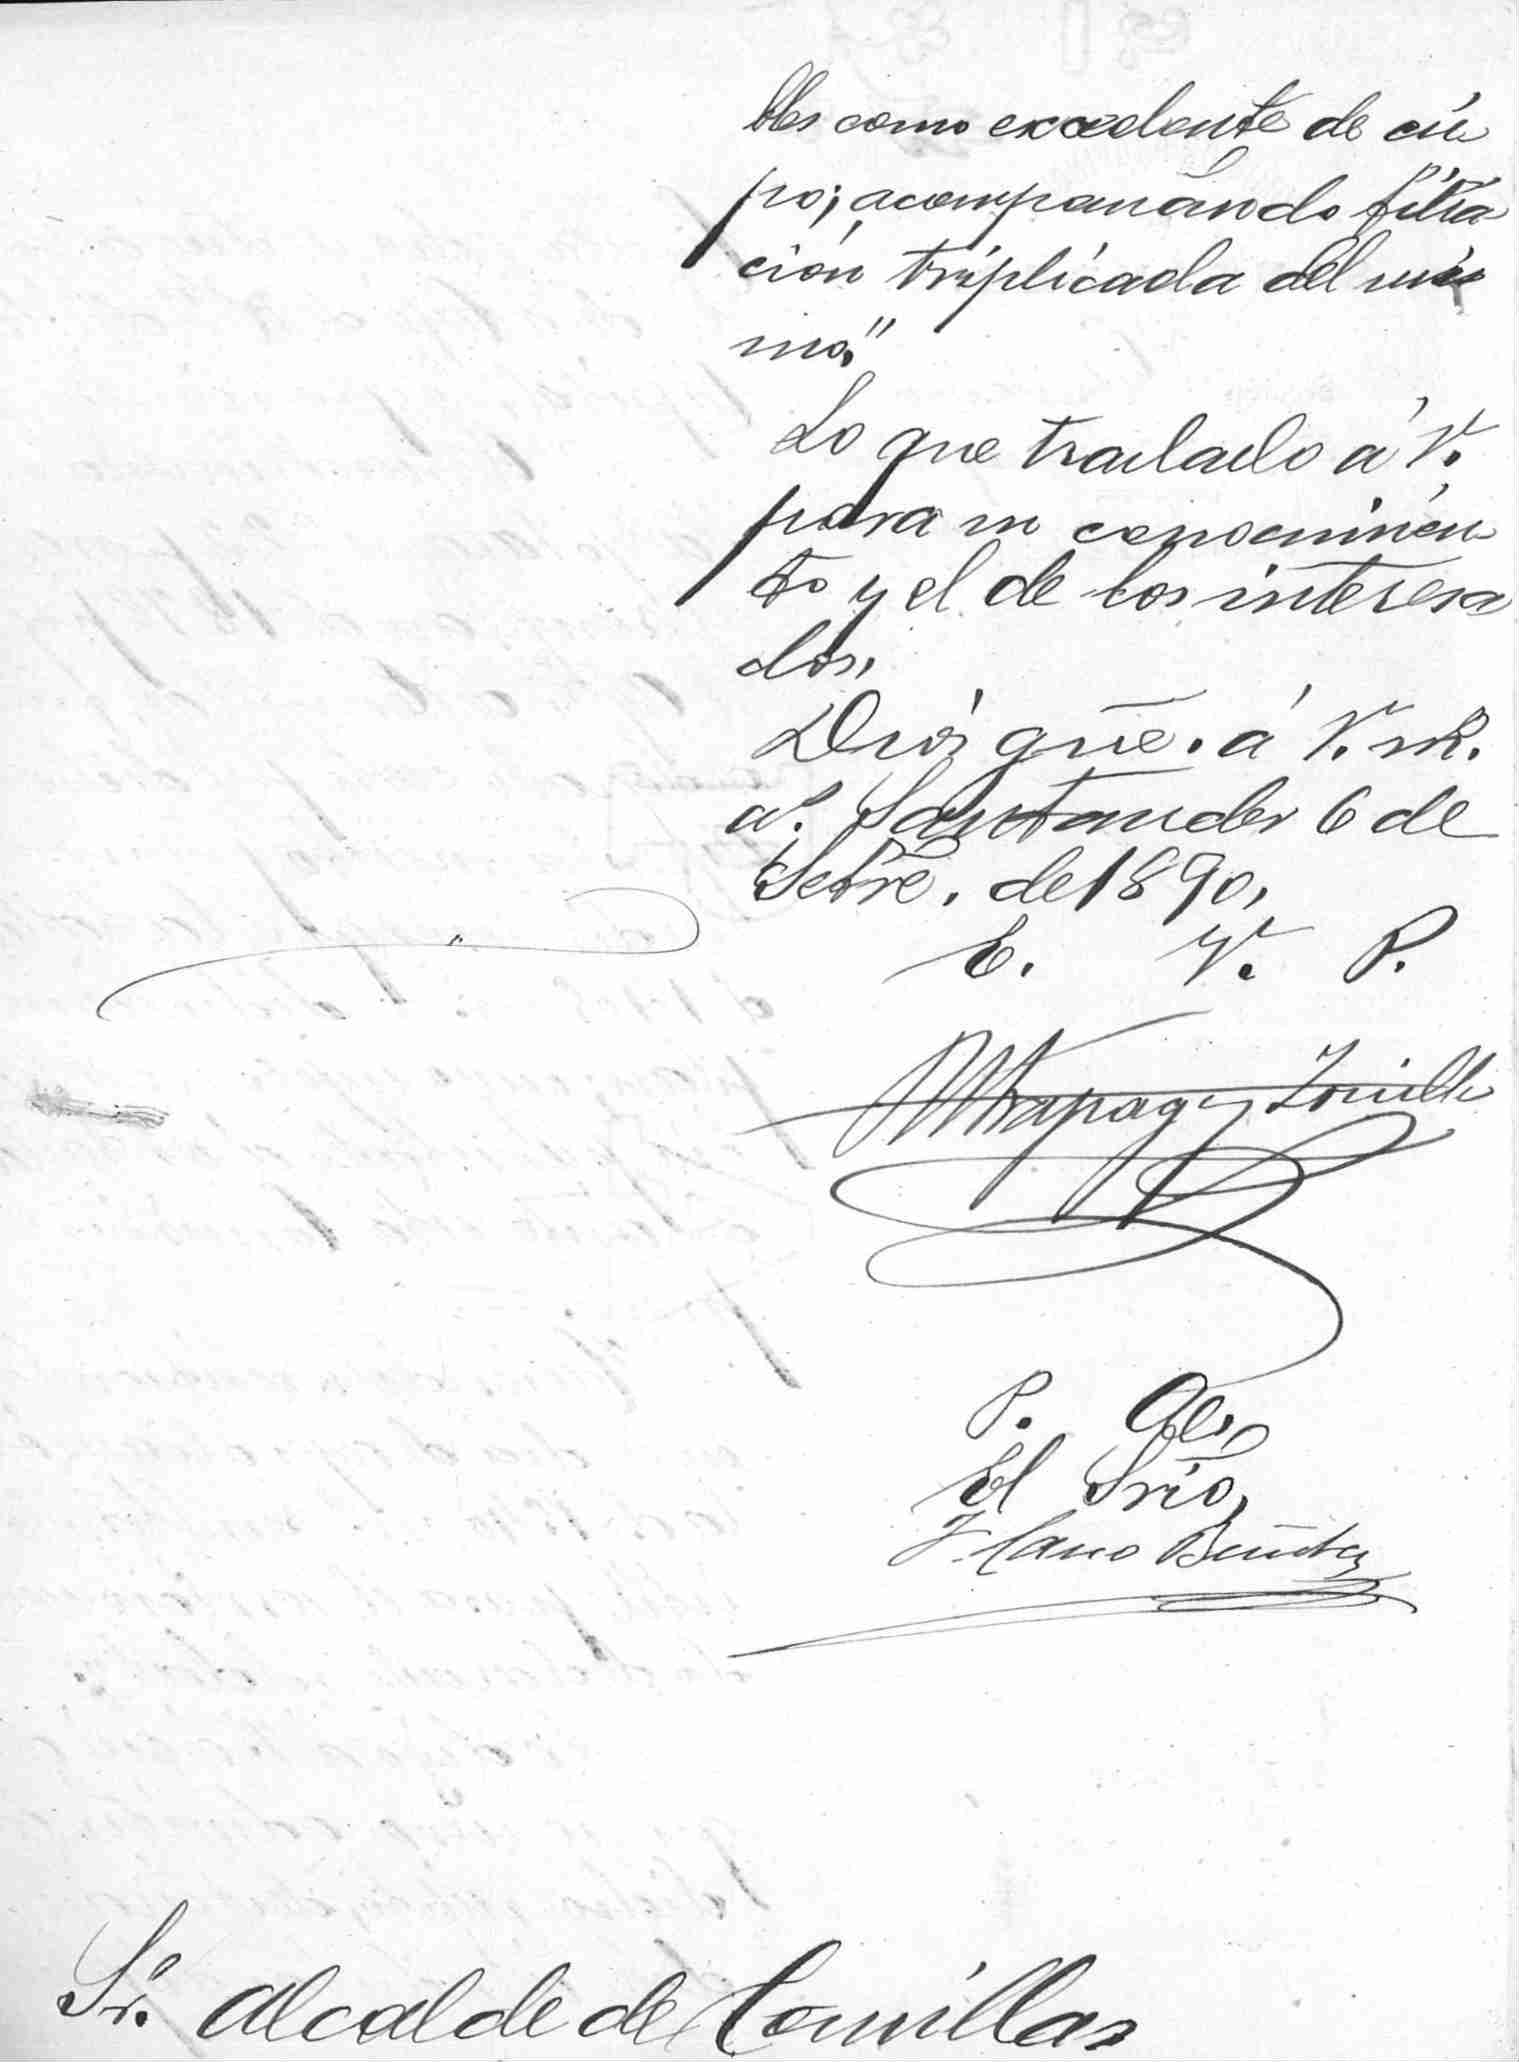 bles como excedente de cu
po; acompañando filia
ción triplicada del mis
mo."
Lo que traslado á V.
para su conocimien
to y el de los interesa
dos.
Dios güe. á V. m.
a.s Santander 6 de
Setre. de 1890.
E. V. P.
y Zorrilla
P. A.
El Srio,
Cano Benitez
Sr. Alcalde de Comillas